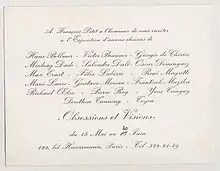 A. François Petit a l'honneur de vous inviter
à l'Exposition d'œuvres choisies de
Hans Bellmer - Victor Brauner - Giorgio de Chirico
Salvador Dali - Oscar Dominguez
Max Ernst - Félix Labisse - René Magritte
Gustave Moreau -
Richard Oelze - Pierre Roy - Yves Tanguy
Dorothea Tanning - Toyen
Obsessions et Visions
du 15 Mai au 30 Juin
122, bd. Haussmann, Paris - Tél.